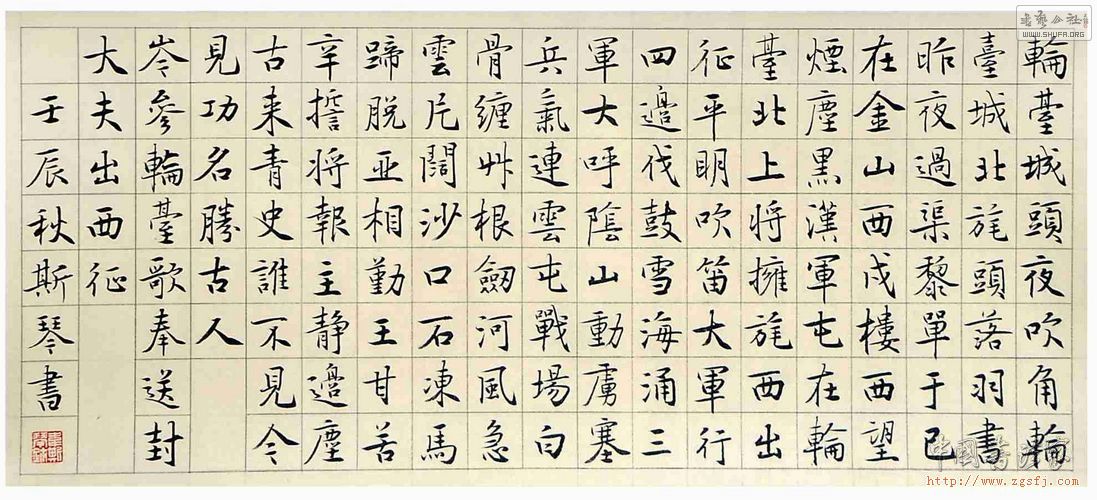 輪臺城頭夜吹角輪
臺城北旄頭落羽書
昨夜過渠黎單于已
在金山西戍樓西望
煙塵黑漢軍屯在輪
臺北上將擁旄西出
征平明吹笛大軍行
四邊伐鼓雪海涌三
軍大呼陰山動虜塞
兵氣連雲屯戰場白
骨纏艸根劒河風急
雲片闊沙口石凍馬
蹄脫亞相勤王甘苦
辛誓將報主静邊塵
古来青史誰不見今
見功名勝古人
岑參輪臺歌奉送封
大夫出西征
壬辰秋斯琴書
WWW.SHUFA.ORG
http://www.zgsfj.com